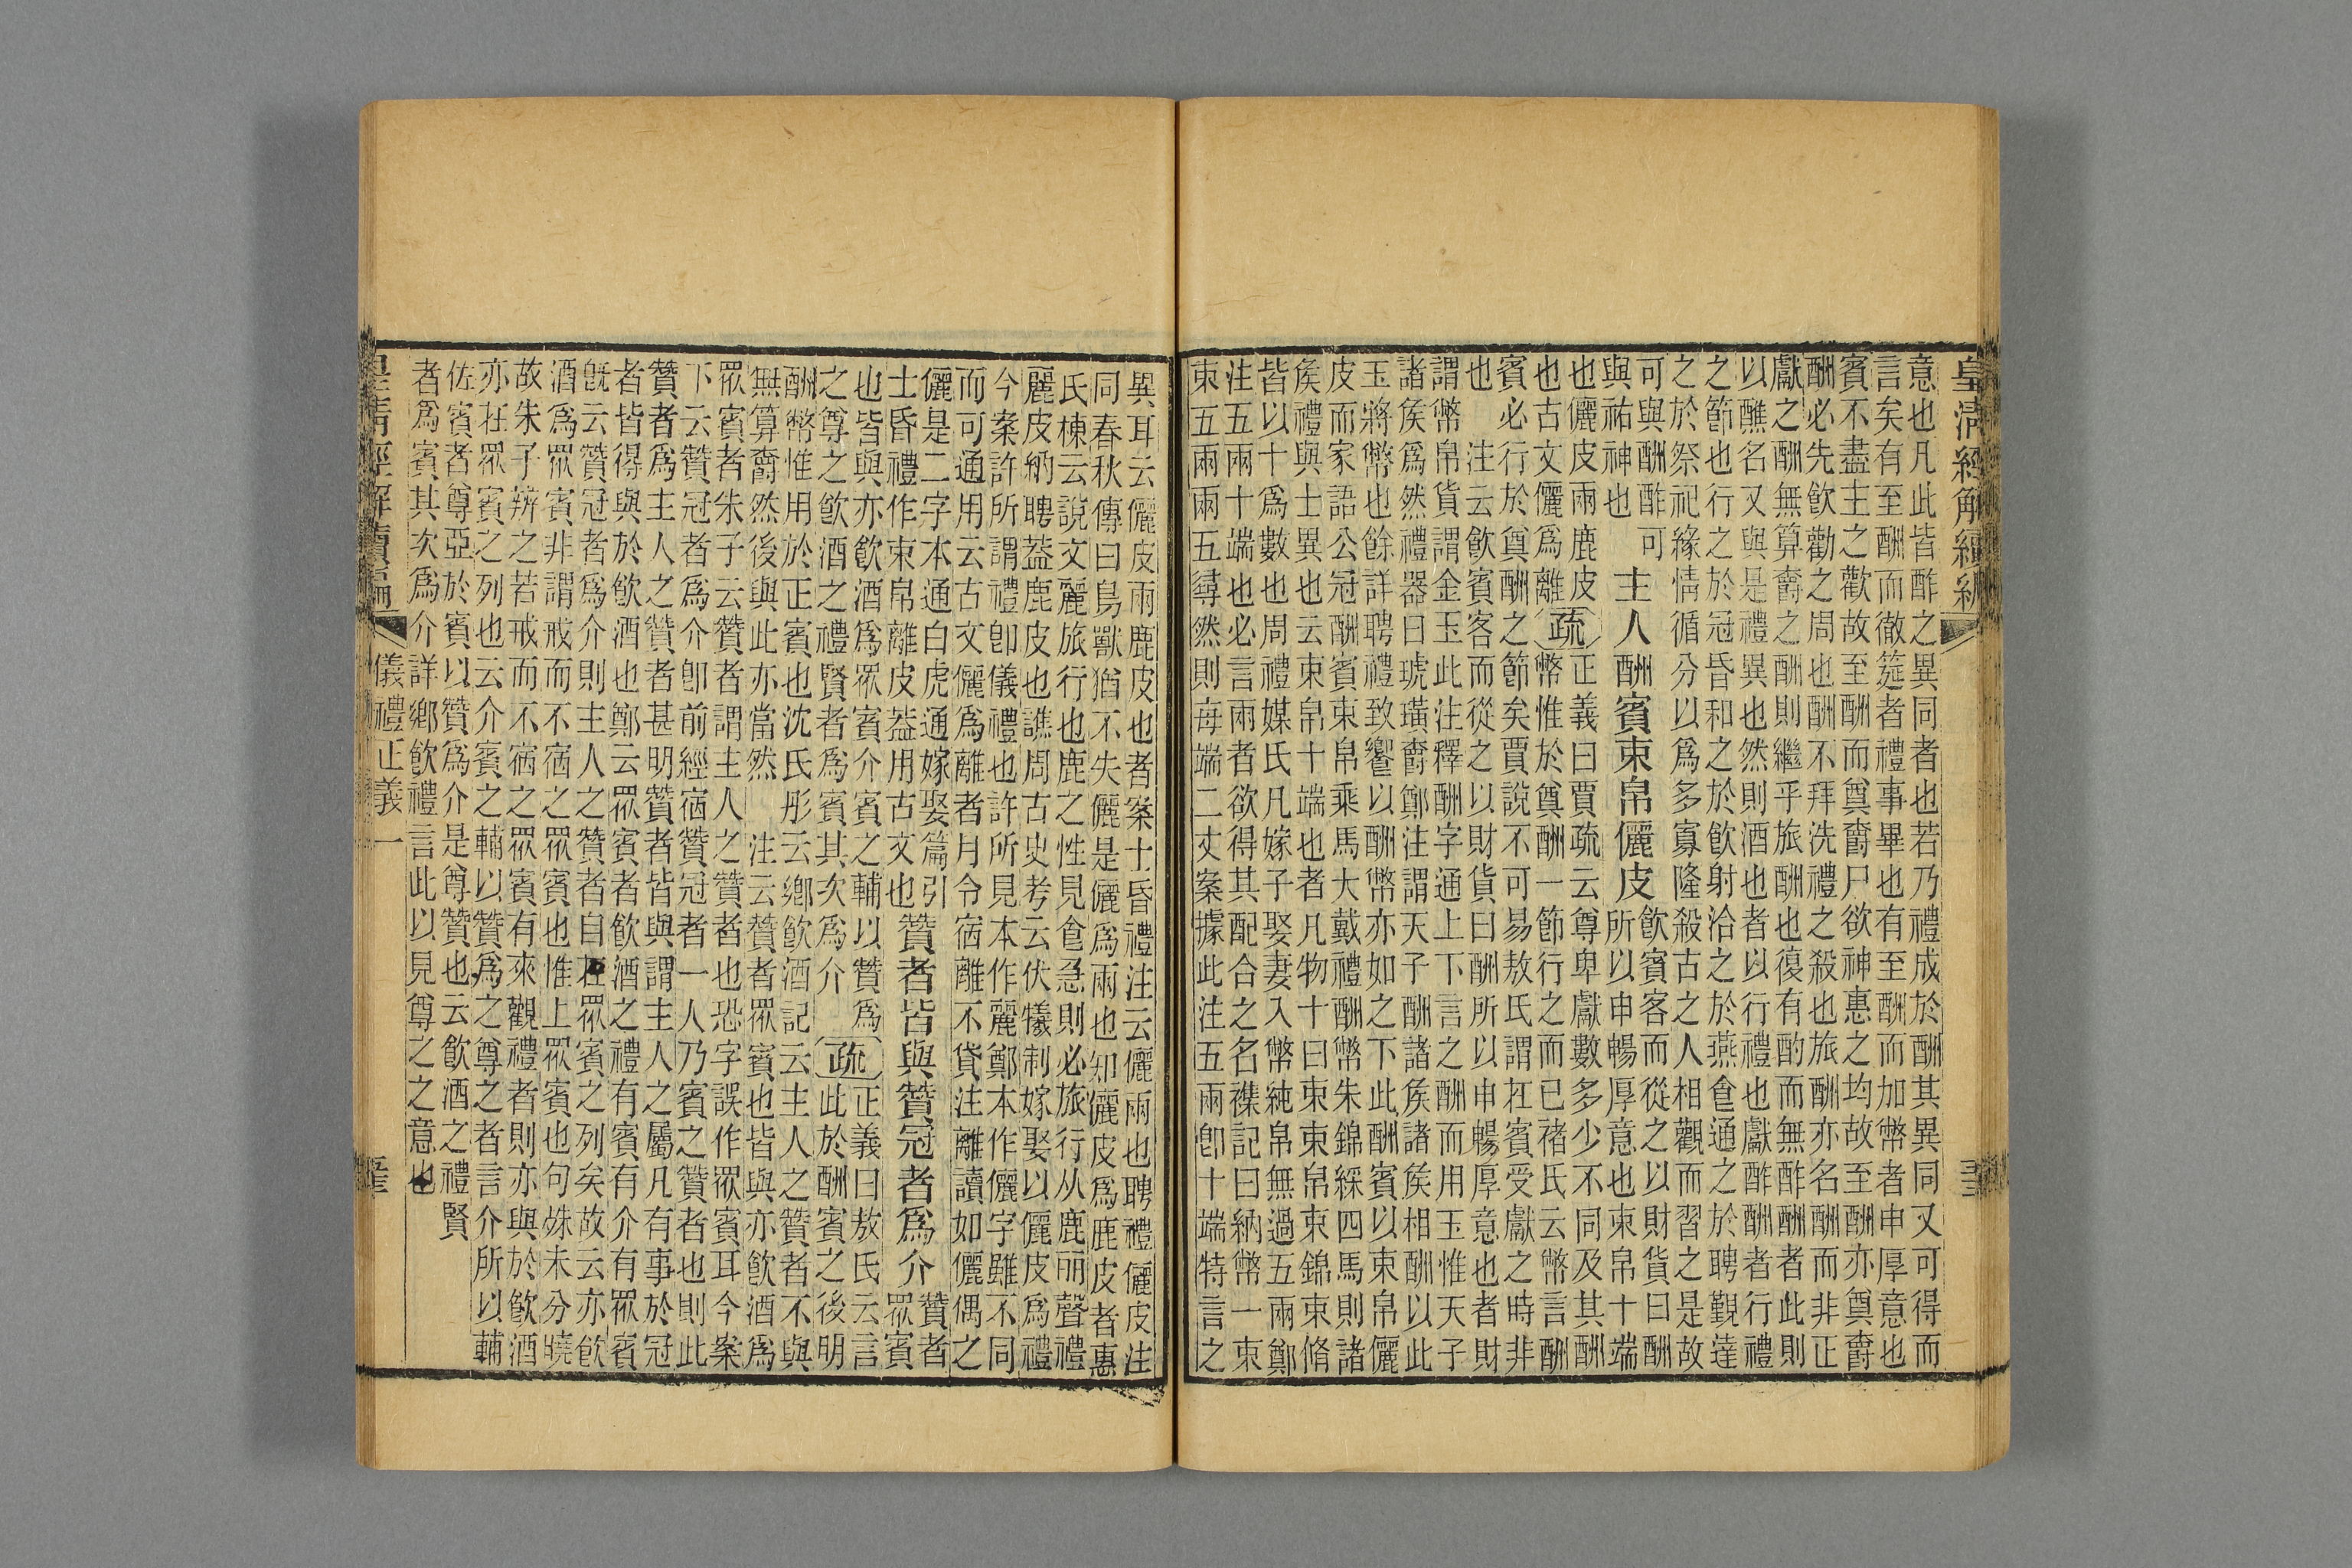 皇清經解續編
意也凡此皆酢之異同者也若乃禮成於酬其異同又可得而
言矣有至酬而徹筵者禮事畢也有至酬而加幣者申厚意也
賓不盡主之歡故至酬而奠爵尸欲神惠之均故至酬亦奠爵
酬必先飲勸之周也酬不拜洗禮之殺也旅酬亦名酬而非正
獻之酬無算爵之酬則繼乎旅酬也復有酌而無酢酬者此則
以醮名又與是禮異也然則酒也者以行禮也獻酢酬者行禮
之節也行之於冠昏和之於飲射洽之於燕食通之於聘覲達
之於祭祀緣情循分以爲多寡隆殺古之人相觀而習之是故
可與酬酢可
與祐神也
主人酬賓束帛儷皮
飲賓客而從之以財貨曰酬
所以申暢厚意也束帛十端
也儷皮兩鹿皮
也古文儷爲離
疏
正義曰賈疏云尊卑獻數多少不同及其酬
幣惟於奠酬一節行之而已褚氏云幣言酬
賓必行於奠酬之節矣賈說不可易敖氏謂在賓受獻之時非
也　注云飲賓客而從之以財貨曰酬所以申暢厚意也者財
謂幣帛貨謂金玉此注釋酬字通上下言之酬而用玉惟天子
諸侯爲然禮器曰琥璜爵鄭注謂天子酬諸侯諸侯相酬以此
玉將幣也餘詳聘禮致饗以酬幣亦如之下此酬賓以束帛儷
皮而家語公冠酬賓束帛乘馬大戴禮酬幣朱錦綵四馬則諸
侯禮與士異也云束帛十端也者凡物十曰束束帛束錦束脩
皆以十爲數也周禮媒氏凡嫁子娶妻入幣純帛無過五兩鄭
注五兩十端也必言兩者欲得其配合之名襍記曰納幣一束
束五兩兩五尋然則每端二丈案據此注五兩卽十端特言之
異耳云儷皮兩鹿皮也者案士昏禮注云儷兩也聘禮儷皮注
同春秋傳曰鳥獸猶不失儷是儷爲兩也知儷皮爲鹿皮者惠
氏棟云說文麗旅行也鹿之性見食急則必旅行从鹿丽聲禮
麗皮納聘葢鹿皮也譙周古史考云伏犧制嫁娶以儷皮爲禮
今案許所謂禮卽儀禮也許所見本作麗鄭本作儷字雖不同
而可通用云古文儷爲離者月令宿離不貸注離讀如儷偶之
儷是二字本通白虎通嫁娶篇引
士昏禮作束帛離皮葢用古文也
贊者皆與贊冠者爲介
贊者
眾賓
也皆與亦飮酒爲眾賓介賓之輔以贊爲
之尊之飮酒之禮賢者爲賓其次爲介
疏
正義曰敖氏云言
此於酬賓之後明
酬幣惟用於正賓也沈氏彤云鄉飮酒記云主人之贊者不與
無算爵然後與此亦當然　注云贊者眾賓也皆與亦飮酒爲
眾賓者朱子云贊者謂主人之贊者也恐字誤作眾賓耳今案
下云贊冠者爲介卽前經宿贊冠者一人乃賓之贊者也則此
贊者爲主人之贊者甚明贊者皆與謂主人之屬凡有事於冠
者皆得與於飮酒也鄭云眾賓者飮酒之禮有賓有介有眾賓
旣云贊冠者爲介則主人之贊者自在眾賓之列矣故云亦飮
酒爲眾賓非謂戒而不宿之眾賓也惟上眾賓也句殊未分曉
故朱子辨之若戒而不宿之眾賓有來觀禮者則亦與於飮酒
亦在眾賓之列也云介賓之輔以贊爲之尊之者言介所以輔
佐賓者尊亞於賓以贊爲介是尊贊也云飮酒之禮賢
者爲賓其次爲介詳鄉飮禮言此以見尊之之意也
皇清經解續編
儀禮正義一